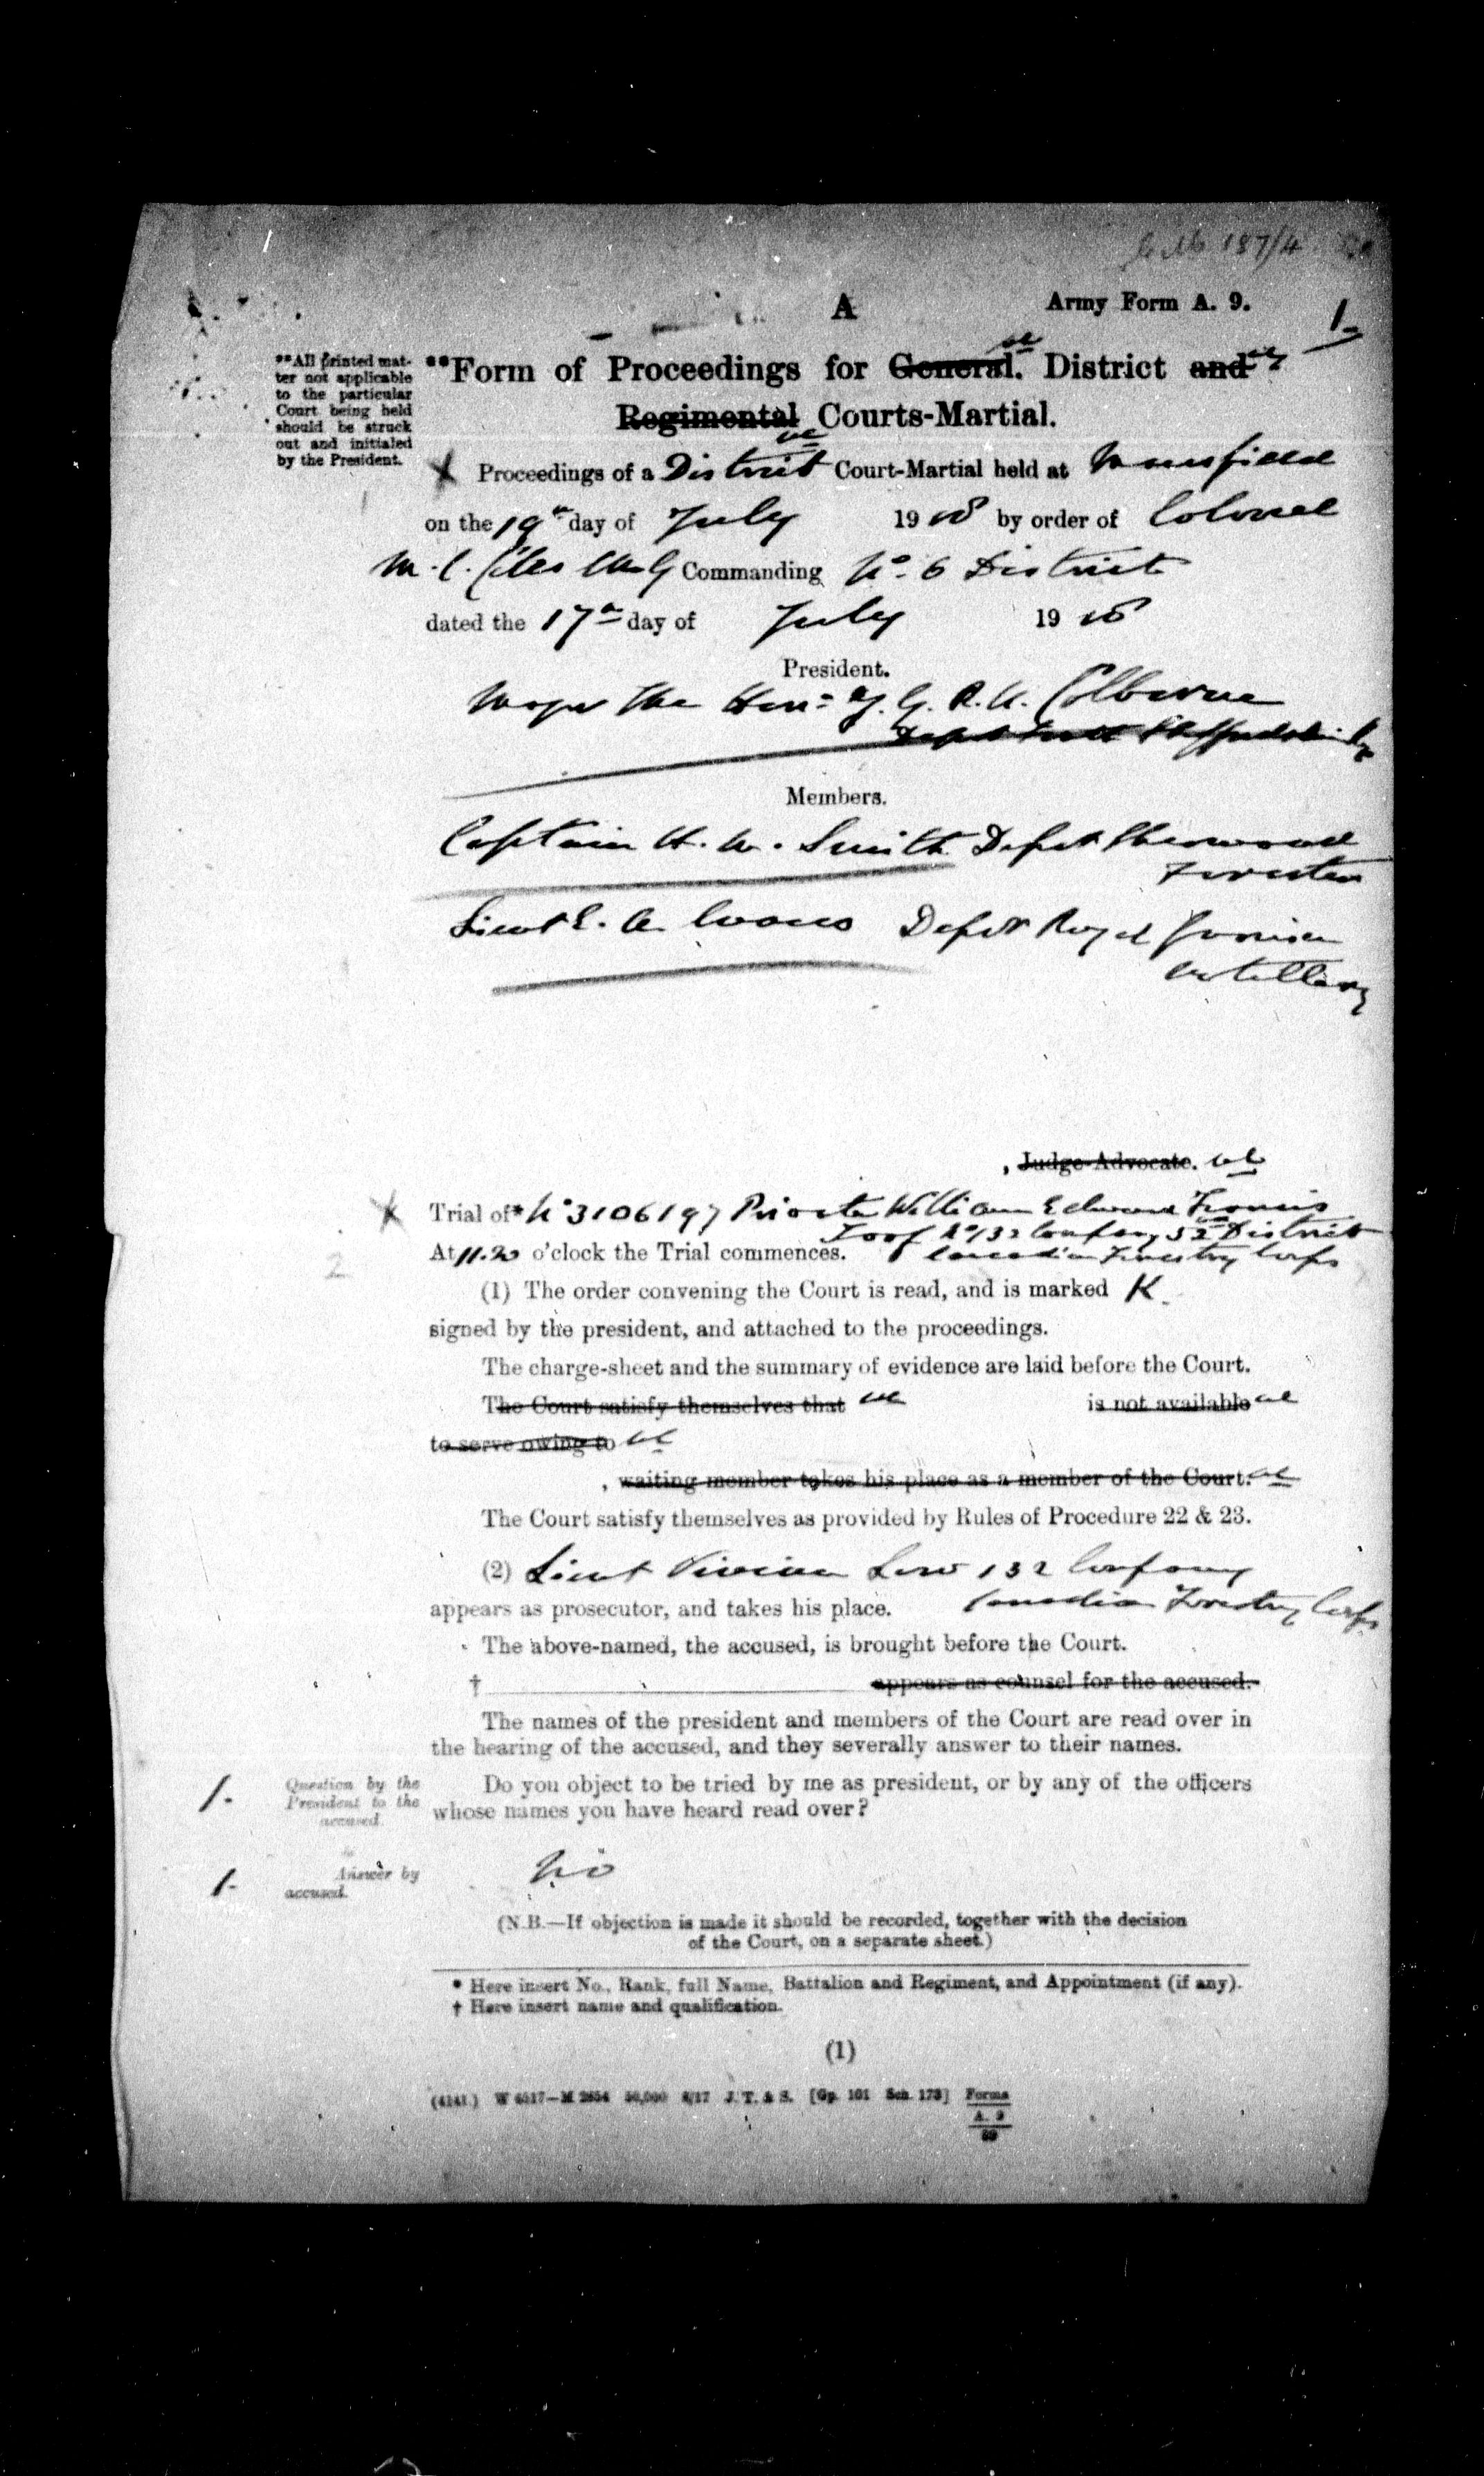 187/4
A
Army Form A. 9.
1.
**All printed mat-
ter not applicable
to the particular
Court being held
should be struck
out and initialed
by the President.
**Form of Proceedings for General. District and
Regimental Courts-Martial.
Proceedings of a District Court-Martial held at Mansfield
on the 19th day of July 1918 by order of Colonel
M. C. Commanding No. 6 District
dated the 17th day of July 1918
President.
Major The Hon: G. R. U. Colborne
Members.
Captain H. W. Smith Depot Sherwood
Foresters
Lieut E. A. Evans Depot Royal Garrison
Artillery
, Judge-Advocate.
Trial of* No 3106197 Private William Edward Francis
Toof No 132 Company 52nd District
At 11.20 o'clock the Trial commences. Canadian Forestry Corps
2
(1) The order convening the Court is read, and is marked K
signed by the president, and attached to the proceedings.
The charge-sheet and the summary of evidence are laid before the Court.
The Court satisfy themselves that is not available
to serve owing to
, waiting member takes his place as a member of the Court.
The Court satisfy themselves as provided by Rules of Procedure 22 & 23.
(2) Lieut Vivian Low 132 Company
appears as prosecutor, and takes his place. Canadian Forestry Corps
The above-named, the accused, is brought before the Court.
† appears as counsel for the accused.
The names of the president and members of the Court are read over in
the hearing of the accused, and they severally answer to their names.
1. Question by the
President to the
accused.
Do you object to be tried by me as president, or by any of the officers
whose names you have heard read over?
1. Answer by
accused.
No
(N.B.—If objection is made it should be recorded, together with the decision
of the Court, on a separate sheet.)
* Here insert No., Rank, full Name, Battalion and Regiment, and Appointment (if any).
† Here insert name and qualification.
(1)
(4141.) W 6517—M 2654 50,000 8/17 J. T. & S. [Gp. 101 Sch. 173] Forms
A. 9